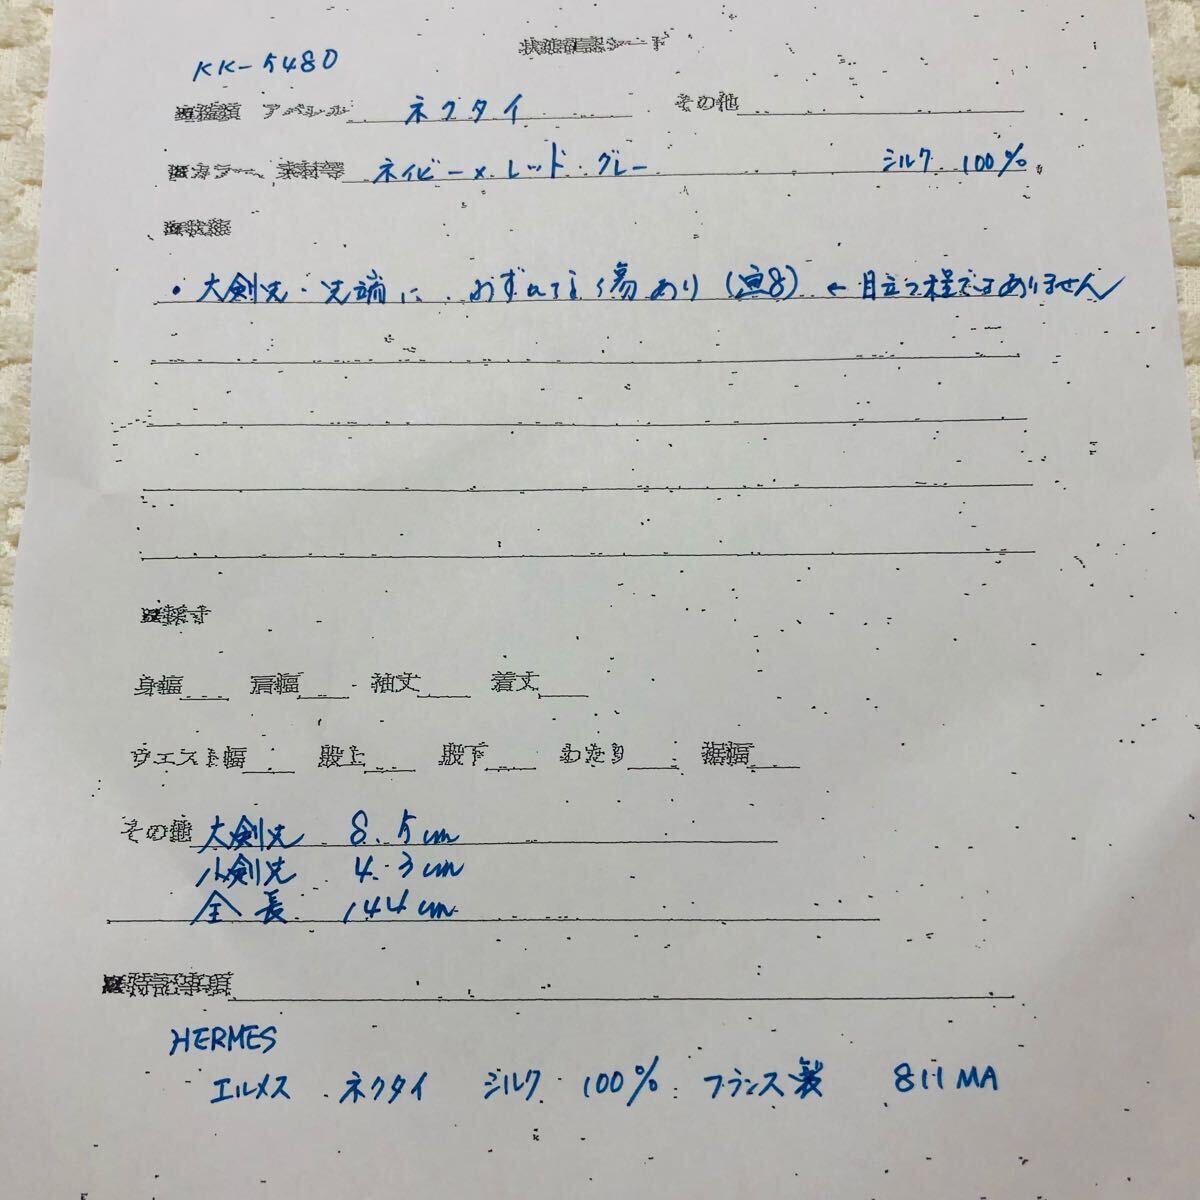 状態確認シート
KK-5480
■種類 アパレル ネクタイ その他
■カラー、素材等 ネイビー×レッド.グレー シルク 100%
■状態
・大剣先・先端に わずれてる傷あり (画8) ← 目立つ程ではありません
■採寸
身幅 肩幅 袖丈 着丈
ウエスト幅 股上 股下 わたり 裾幅
その他 大剣先 8.5cm
小剣先 4.3cm
全長 144cm
■特記事項
HERMES
エルメス ネクタイ シルク 100% フランス製 811MA